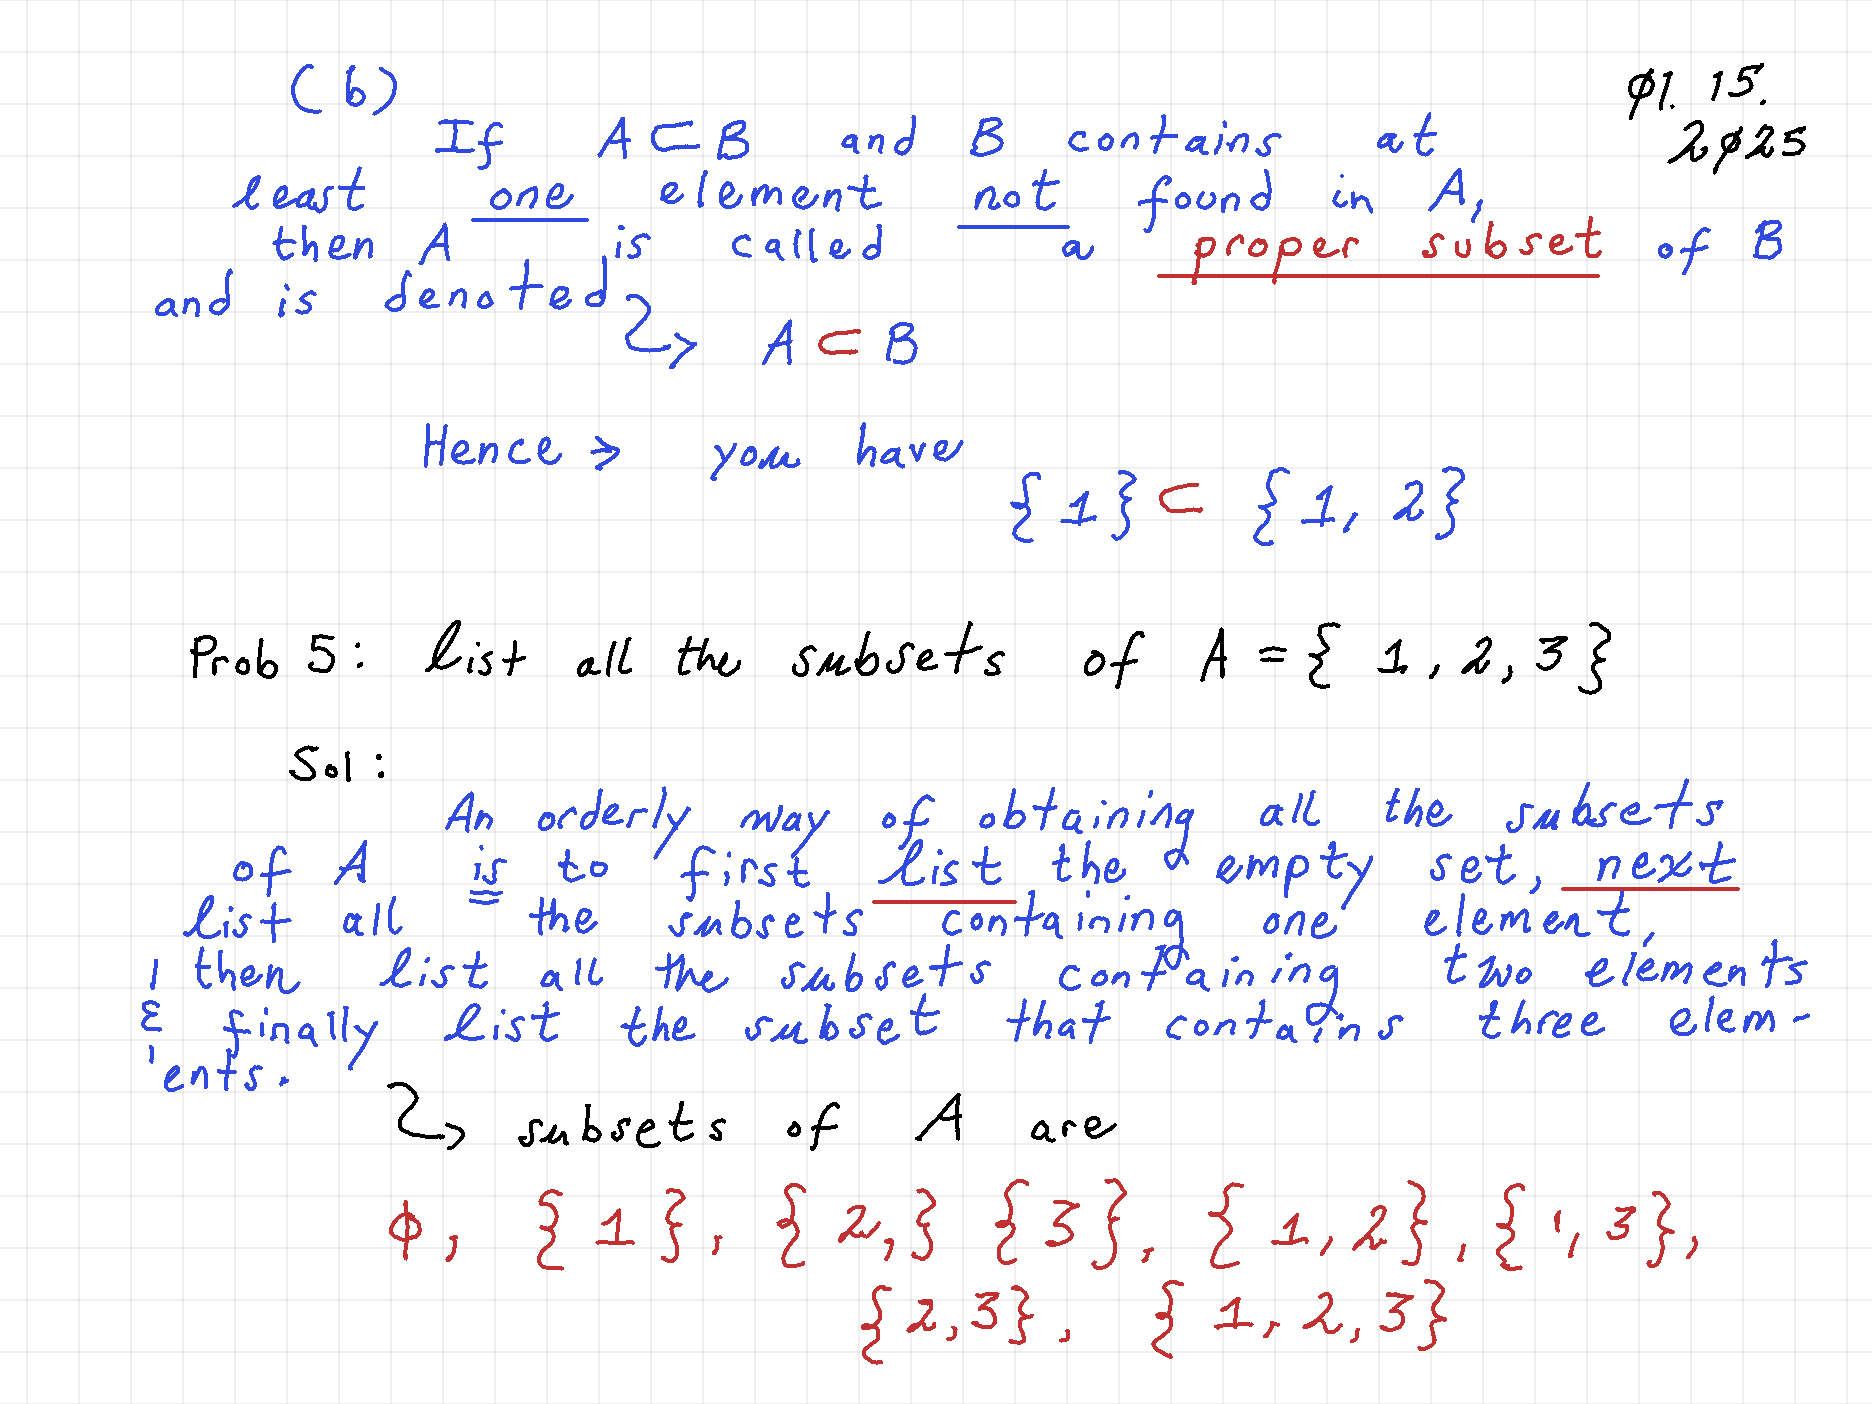 (b)
Ø1. 15.
2Ø25
If A ⊂ B and B contains at
least one element not found in A,
then A is called a proper subset of B
and is denoted
↪ A ⊂ B
Hence → you have
{ 1 } ⊂ { 1, 2 }
Prob 5: list all the subsets of A = { 1, 2, 3 }
Sol:
An orderly way of obtaining all the subsets
of A is to first list the empty set, next
list all the subsets containing one element,
then list all the subsets containing two elements
& finally list the subset that contains three elem-
ents.
↪ subsets of A are
ϕ, { 1 }, { 2,} { 3 }, { 1, 2 }, { 1, 3 },
{ 2, 3 }, { 1, 2, 3 }